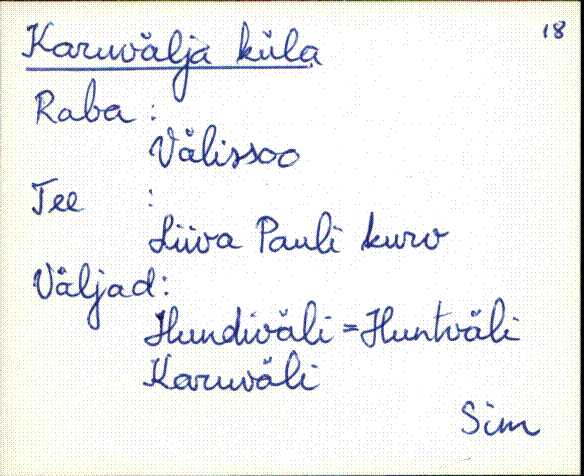 18
Karuvälja küla
Raba :
Välissoo
Tee :
Liiva Pauli kurv
Väljad:
Hundiväli = Huntväli
Karuväli
Sim